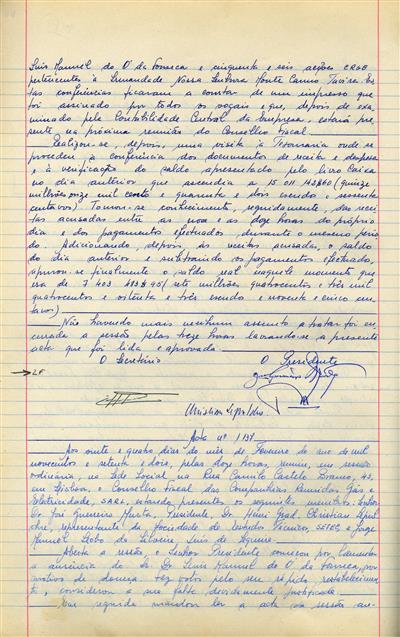 Luis Manuel do O' da Fonseca e cinquenta e seis acções CRGE
pertencentes à Irmandade Nossa Senhora Monte Carmo Tavira. Es-
tas conferências ficaram a constar de um impresso que
foi assinado por todos os vogais e que, depois de exa-
minado pela Contabilidade Central da Empresa, estará pre-
sente na próxima reunião do Conselho Fiscal.
Realizou-se, depois, uma visita à Tesouraria onde se
procedeu à conferência dos documentos de receita e despesa
e à verificação do saldo apresentado pelo livro Caixa
no dia anterior que ascendia a 15 011 142$60 (quinze
milhões onze mil cento e quarenta e dois escudos e sessenta
centavos). Tomou-se conhecimento, seguidamente, das recei-
tas acusadas entre as nove e as doze horas do próprio
dia e dos pagamentos efectuados durante o mesmo perío-
do. Adicionando, depois, às receitas acusadas, o saldo
do dia anterior e subtraindo os pagamentos efectuados,
apurou-se finalmente o saldo real naquele momento que
era de 7 403 483$95 (sete milhões quatrocentos e três mil
quatrocentos e oitenta e três escudos e noventa e cinco cen-
tavos).
Não havendo mais nenhum assunto a tratar foi en-
cerrada a sessão pelas treze horas lavrando-se a presente
acta que foi lida e aprovada.
O Secretário O Presidente
LF
Christian
Acta nº 1131
Aos vinte e quatro dias do mês de Fevereiro do ano de mil
novecentos e setenta e dois, pelas doze horas, reuniu, em sessão
ordinária, na Sede Social na Rua Camilo Castelo Branco, 43,
em Lisboa, o Conselho Fiscal das Companhias Reunidas Gás e
Electricidade, SARL, estando presentes os seguintes membros: Senhor
Dr José Guerreiro Murta, Presidente, Dr Henri Grad. Christian
representante da Sociedade de Estudos Técnicos, SETEC e Jorge
Manuel Gobo da Silveira Luis de Aguiar.
Aberta a sessão o Senhor Presidente começou por lamentar
a ausência do Sr. Dr Luis Manuel do O' da Fonseca, por
motivos de doença, fez votos pelo seu rápido restabelecimen-
to, e considerou a sua falta devidamente justificada.
Em seguida mandou ler a acta da sessão an-